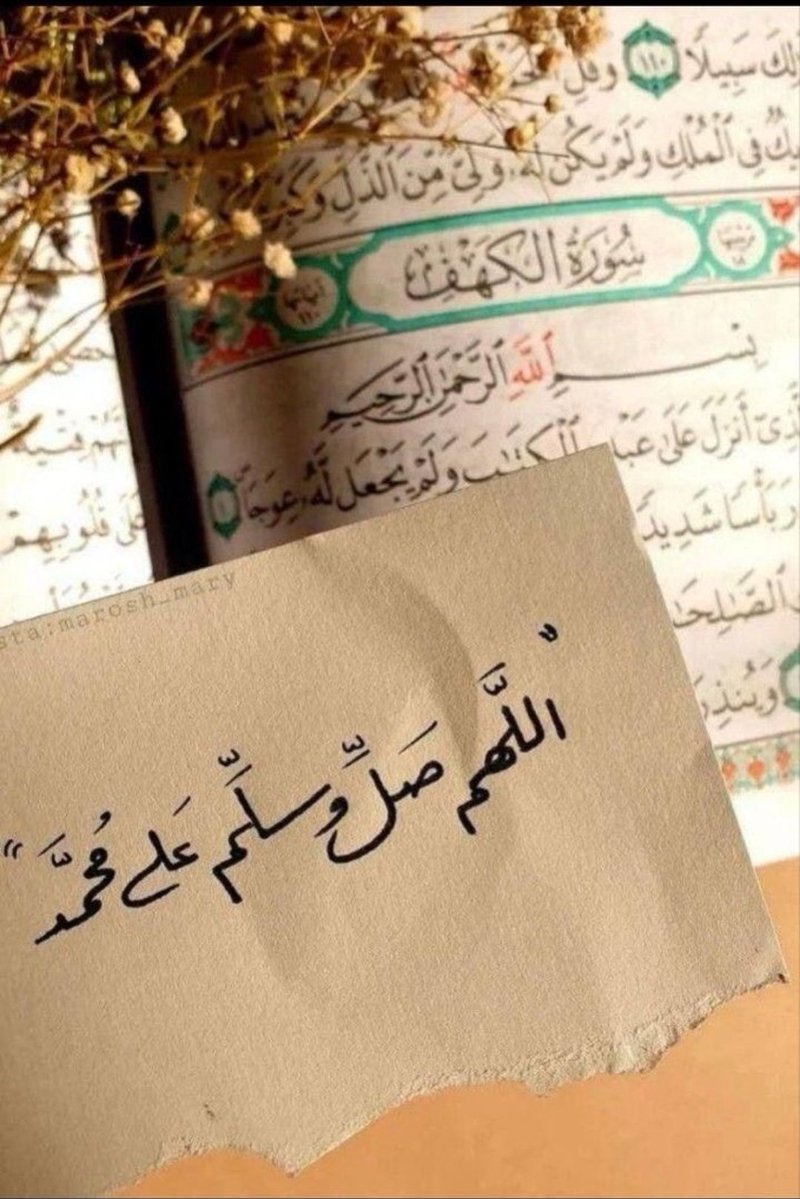 لِكَ سَبِيلًا ١١٠ وَقُلِ
فِي ٱلْمُلْكِ وَلَمْ يَكُن لَّهُۥ وَلِيٌّ مِّنَ ٱلذُّلِّ
سُورَةُ الكَهْفِ
بِسْمِ ٱللَّهِ ٱلرَّحْمَٰنِ ٱلرَّحِيمِ
أَنزَلَ عَلَىٰ ٱلْكِتَٰبَ وَلَمْ يَجْعَل لَّهُۥ عِوَجَا ١
بَأْسًا شَدِيدًا
ٱلصَّٰلِحَٰ
وَيُنذِرَ
فِتْيَةٌ
عَلَىٰ قُلُوبِهِمْ
sta:marosh_mary
"اللَّهم صَلِّ وسلِّم عَلى مُحمَّد"